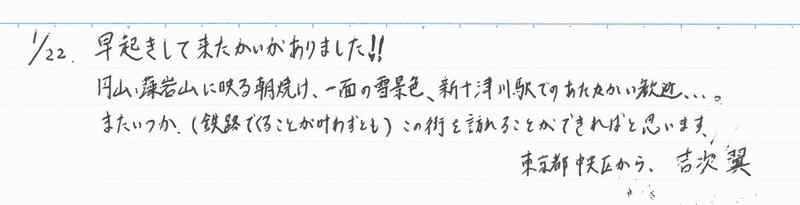 1/22. 早起きして来たかいがありました!!
円山、藻岩山に映る朝焼け、一面の雪景色、新十津川駅でのあたたかい歓迎...。
またいつか、(鉄路でくることが叶わずとも)この街を訪れることができればと思います。
東京都中央区から、吉次 翼